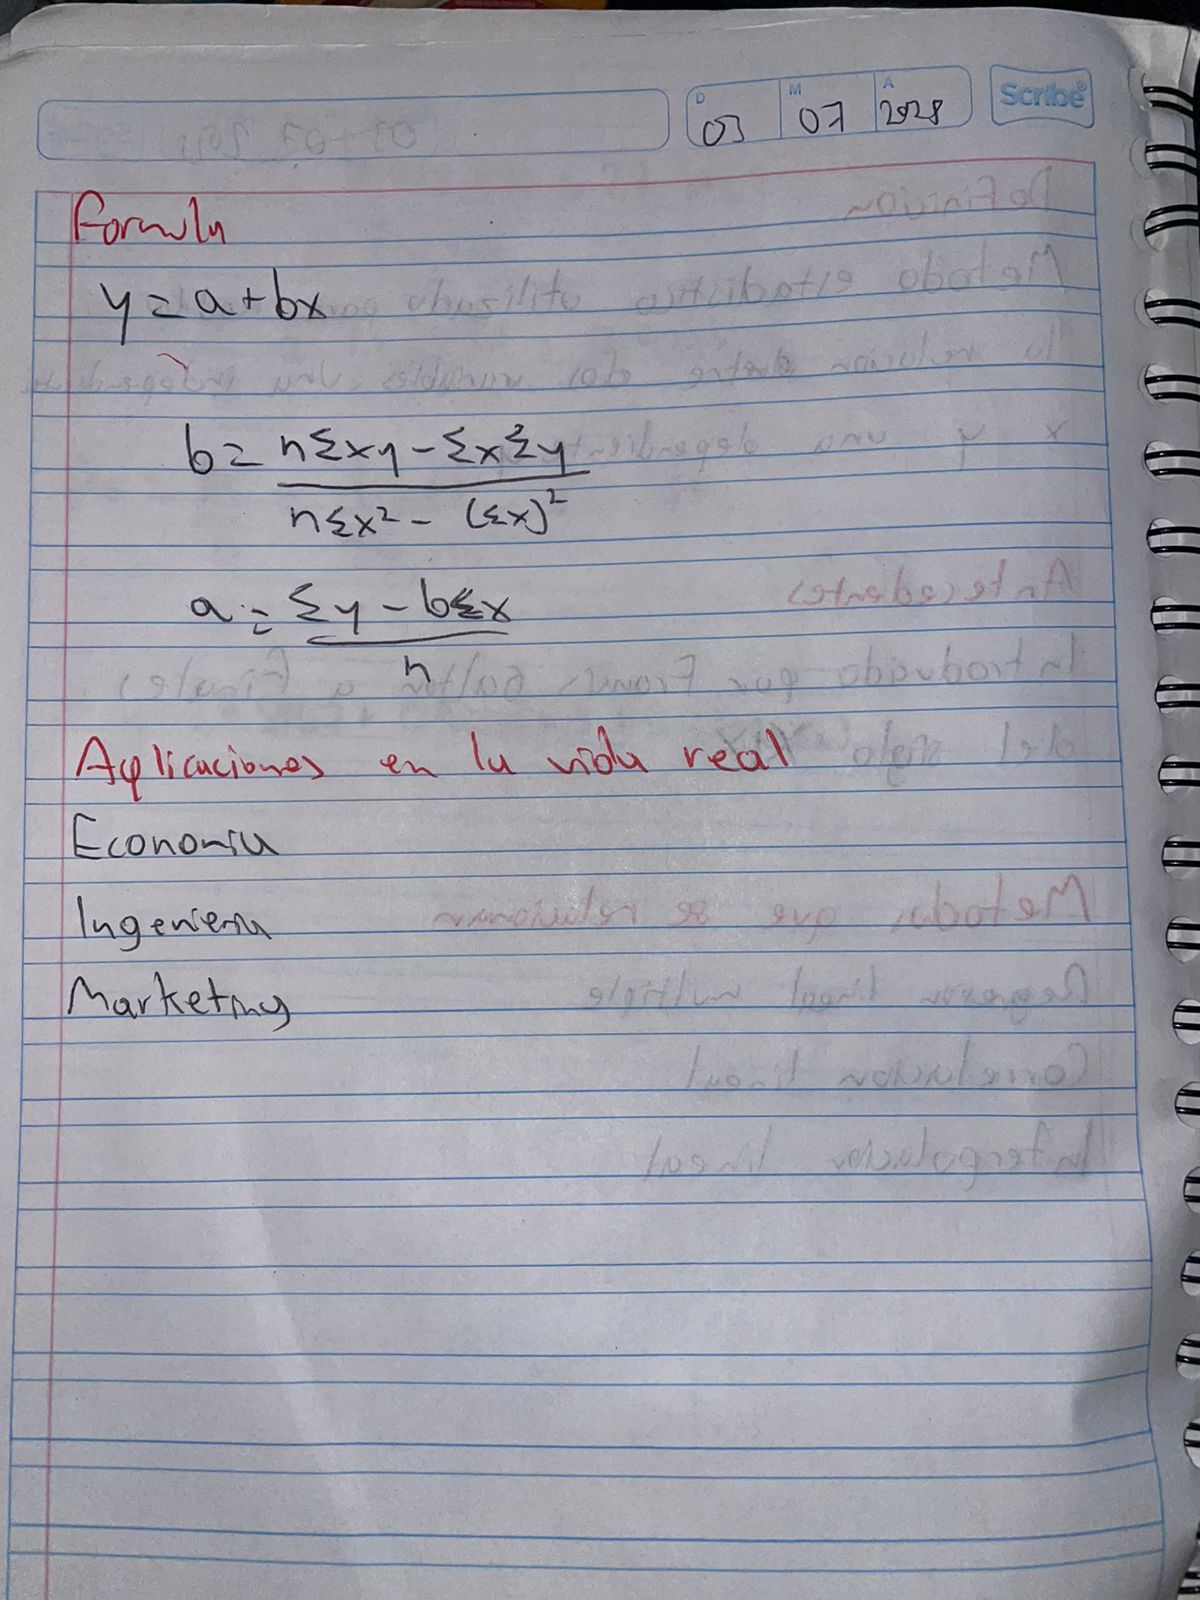 D M A Scribe
03 07 2028
Formula
y = a + bx
b = nΣxy - ΣxΣy
nΣx² - (Σx)²
a = Σy - bΣx
n
Aplicaciones en la vida real
Economia
Ingenieria
Marketing